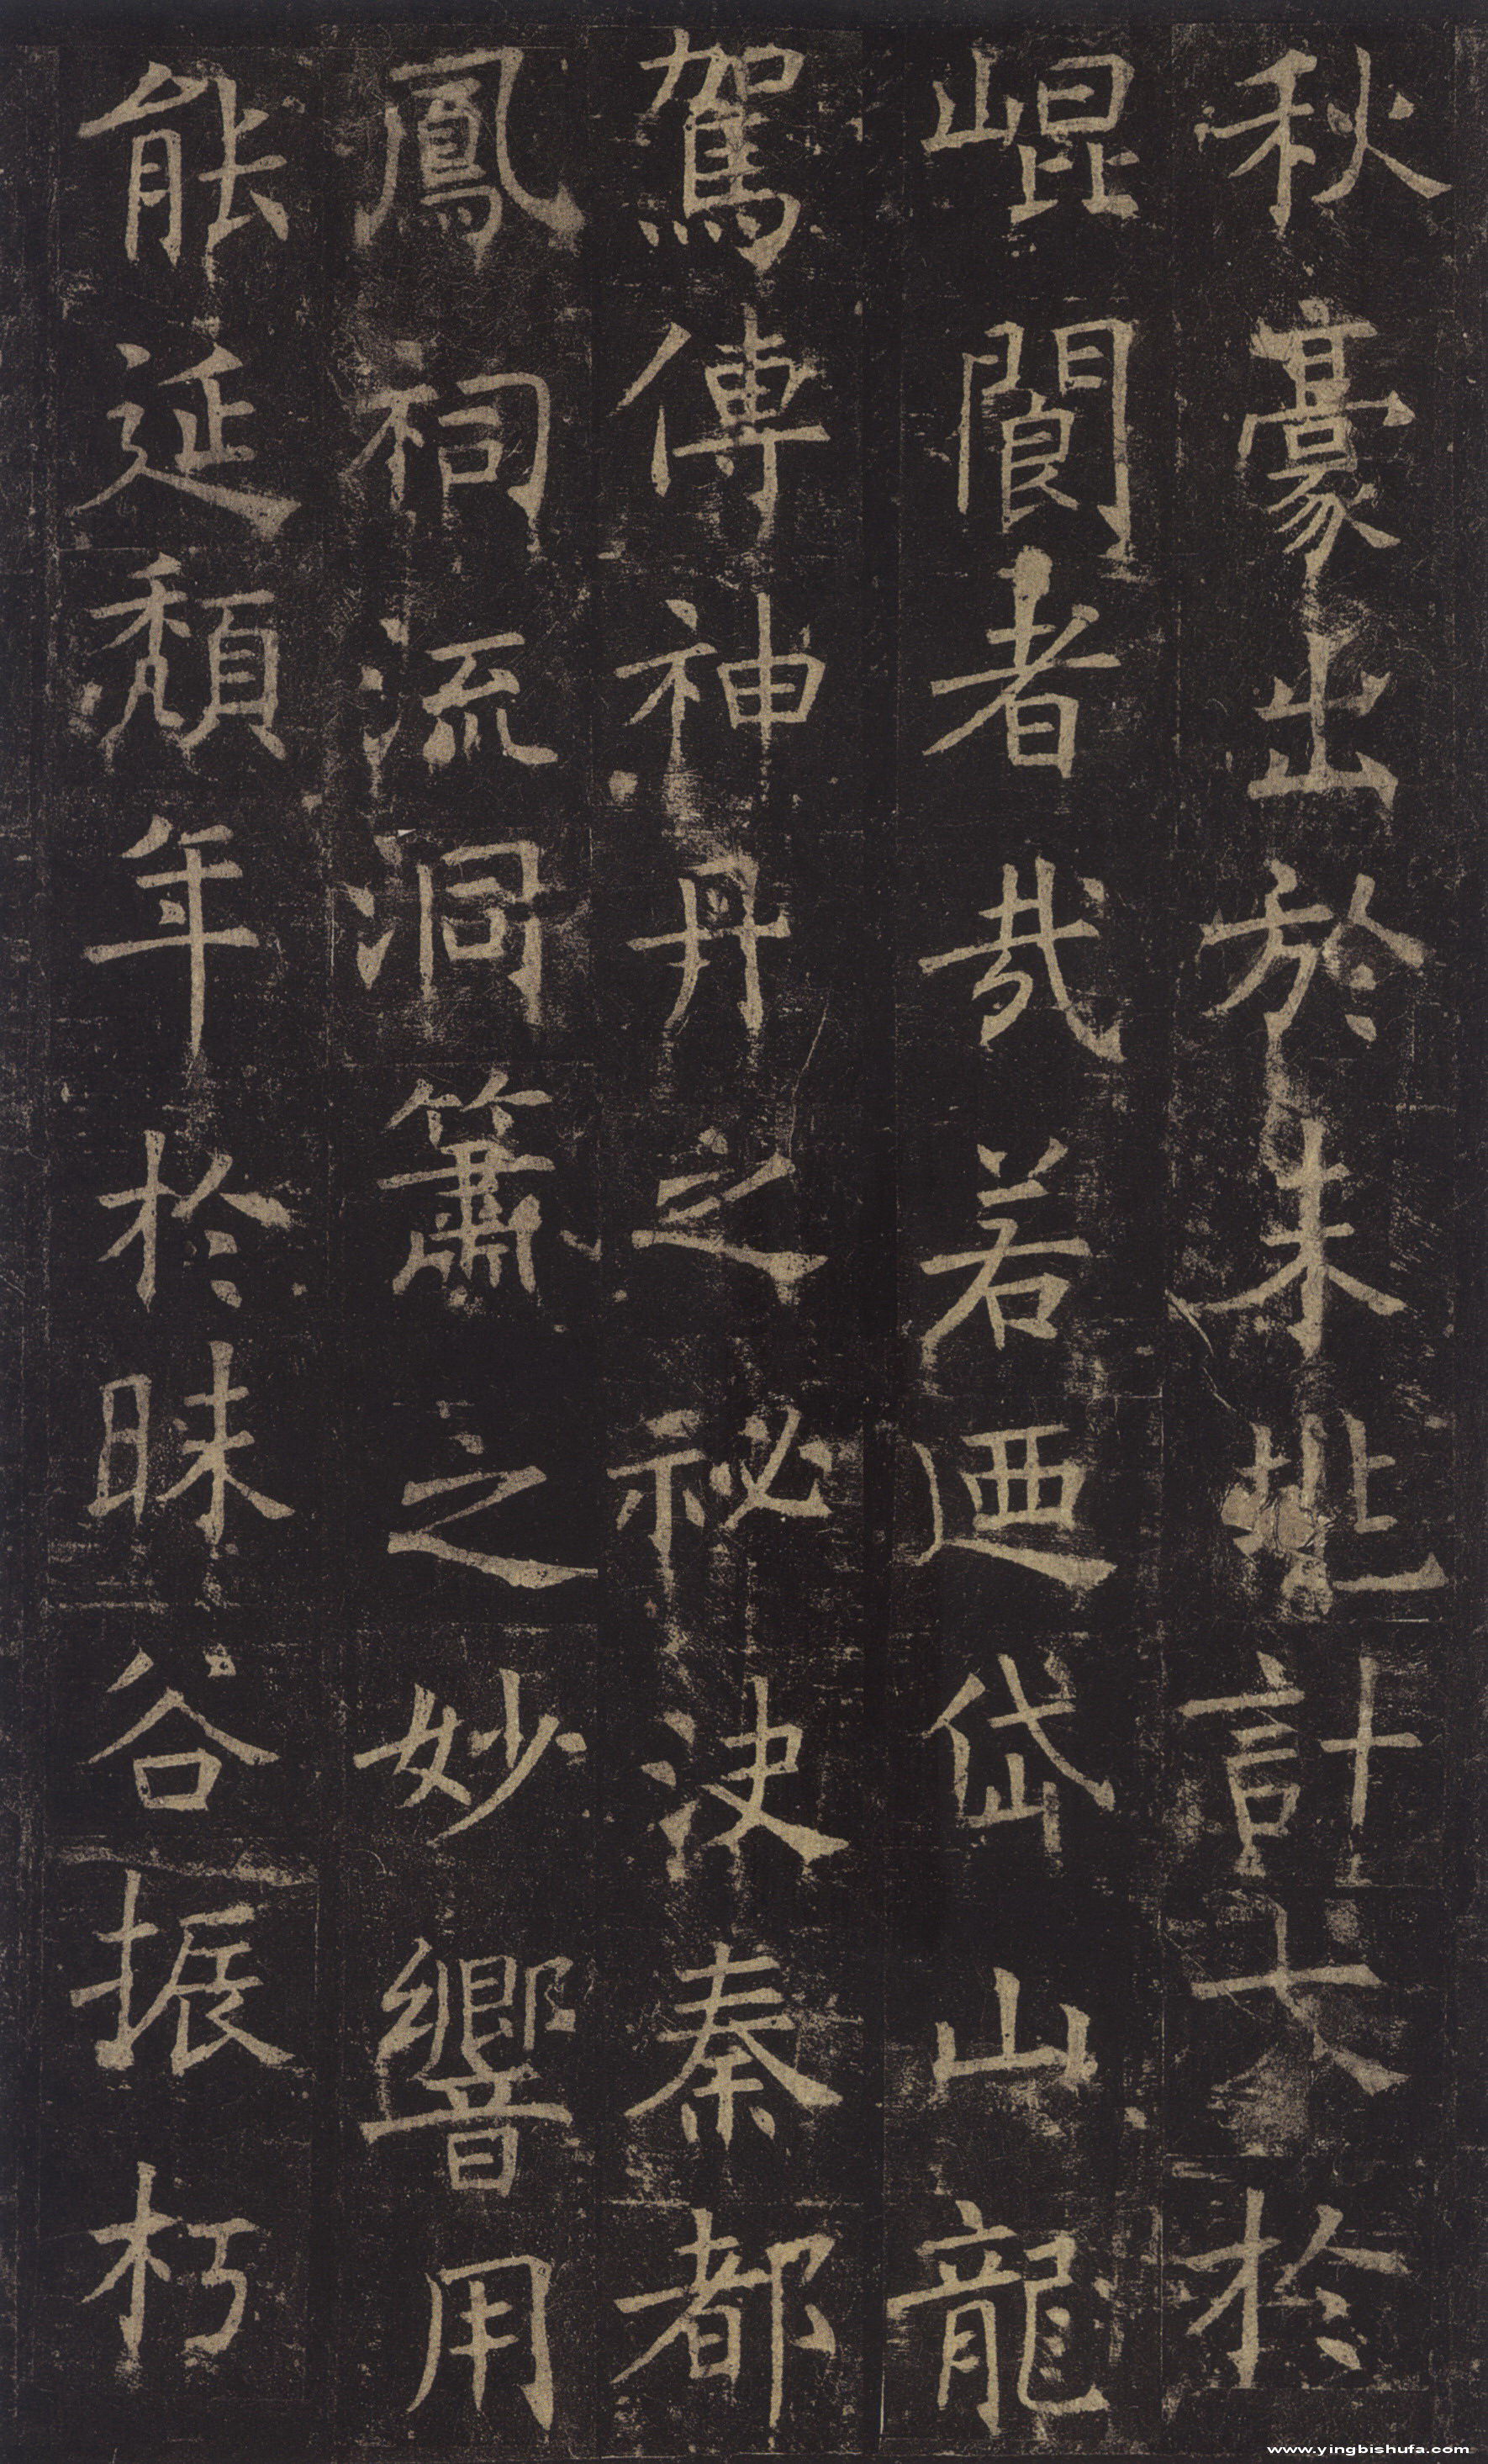 秋豪出於朱㘲計大於
崐閬者哉若迺岱山龍
駕傳神丹之祕決秦都
鳳祠流洞簫之妙響用
能延頹年於昧谷振朽
www.yingbishufa.com